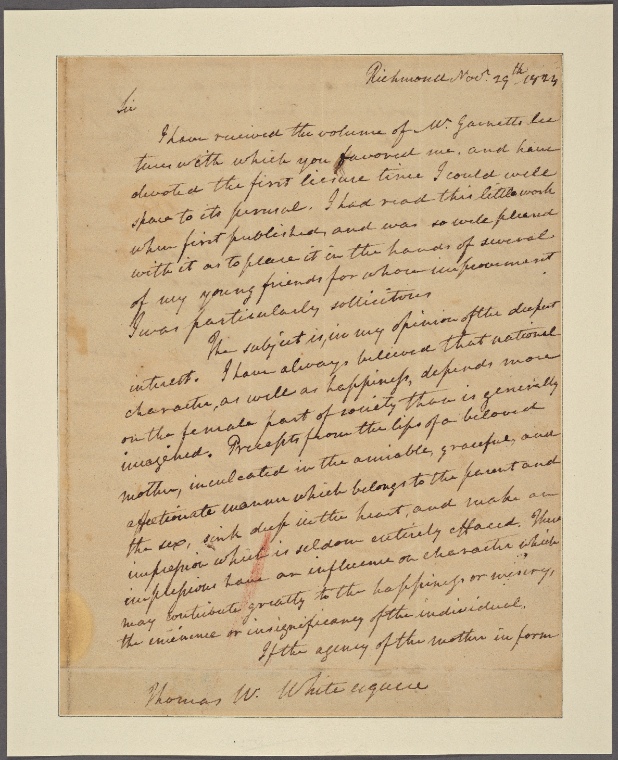 Richmond Nov. 29th 1824
Sir
I have received the volume of Mr. Garnetts lec
tures with which you favored me, and have
devoted the first leisure time I could well
spare to its perusal. I had read this little work
when first published, and was so well pleased
with it as to place it in the hands of several
of my young friends for whose improvement
I was particularly sollicitous
The subject is, in my opinion of the deepest
interest. I have always believed that national
character, as well as happiness, depends more
on the female part of society than is generally
imagined. Precepts from the lips of a beloved
mother, inculcated in the amiable, graceful, and
affectionate manner which belongs to the parent and
the sex, sink deep in the heart, and make an
impression which is seldom entirely effaced. These
impressions have an influence on character which
may contribute greatly to the happiness or misery,
the eminence or insignificancy of the individual.
If the agency of the mother in form
Thomas W. White esquire